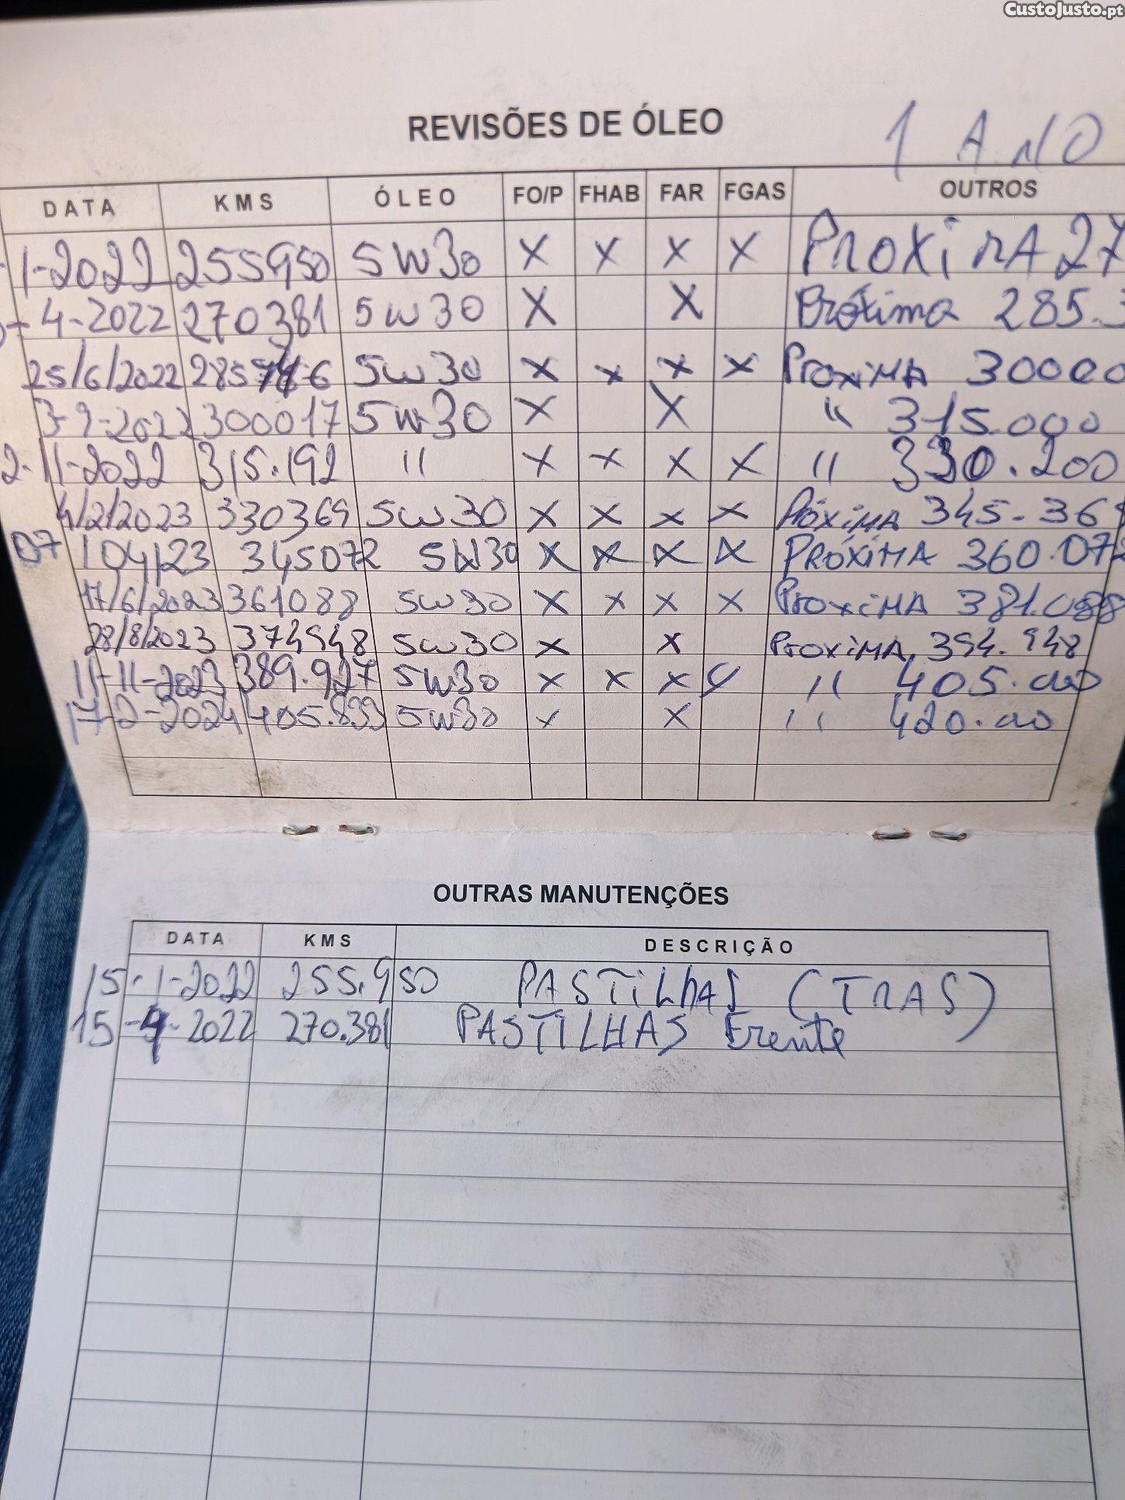 CustoJusto.pt
REVISÕES DE ÓLEO 1 ANO
DATA KMS ÓLEO FO/P FHAB FAR FGAS OUTROS
1-2022 255950 5W30 X X X X PROXIMA 27
4-2022 270381 5W30 X X Próxima 285.3
25/6/2022 5W30 X X X X PROXIMA 30000
3-9-2022 300017 5W30 X X " 315.000
2-11-2022 315.192 " X X X X " 330.200
4/2/2023 330369 5W30 X X X X PRÓXIMA 345.369
07 104/23 345072 5W30 X X X X PRÓXIMA 360.072
17/6/2023 361088 5W30 X X X X PROXIMA 381.088
28/8/2023 374948 5W30 X X PROXIMA 394.948
11-11-2023 389.927 5W30 X X X X " 405.000
17-2-2024 405.833 5W30 X X " 420.00
OUTRAS MANUTENÇÕES
DATA KMS DESCRIÇÃO
15-1-2022 255.950 PASTILHAS (TRAS)
15-4-2022 270.381 PASTILHAS Frente